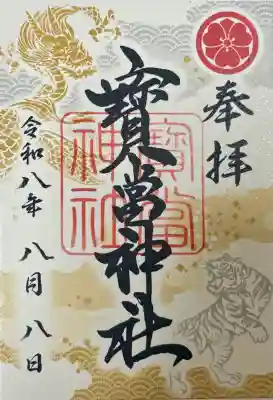 奉拝
寶當神社
寶當神社
令和八年八月八日